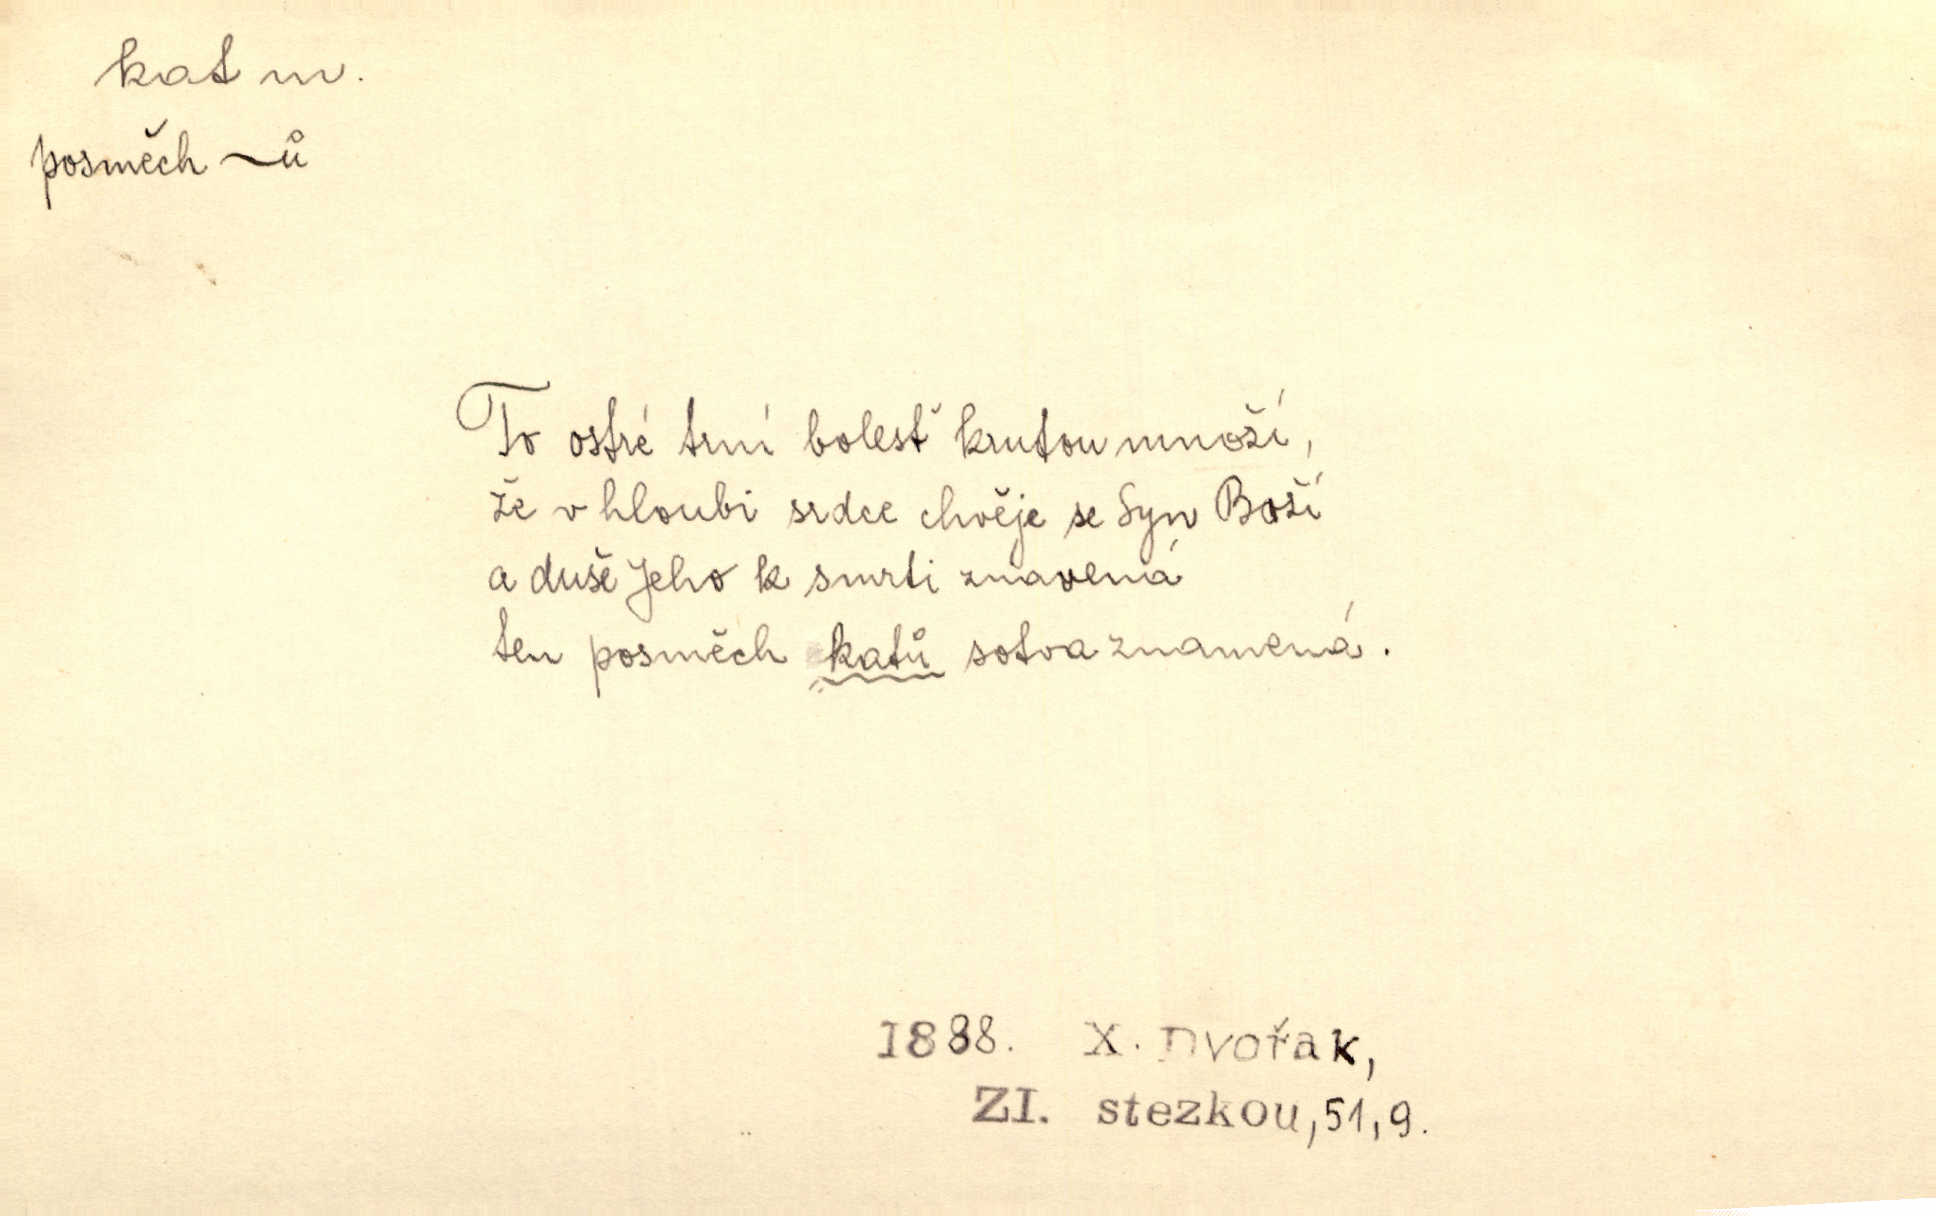 kat m.
posměch ~ů
To ostré trní bolesť krutou množí,
že v hloubi srdce chvěje se Syn Boží
a duše Jeho k smrti znavená
ten posměch katů sotva znamená.
1888. X. Dvořak,
ZI. stezkou, 51, 9.